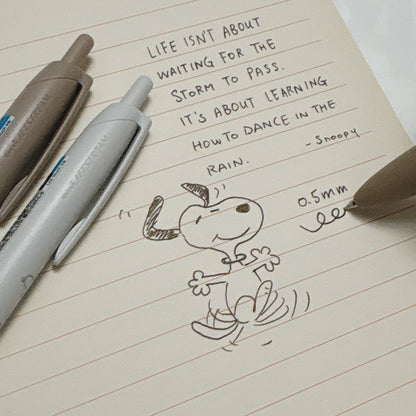 LIFE ISN'T ABOUT
WAITING FOR THE
STORM TO PASS.
IT'S ABOUT LEARNING
HOW TO DANCE IN THE
RAIN.
- Snoopy
0.5mm
JETSTREAM
JETSTREAM